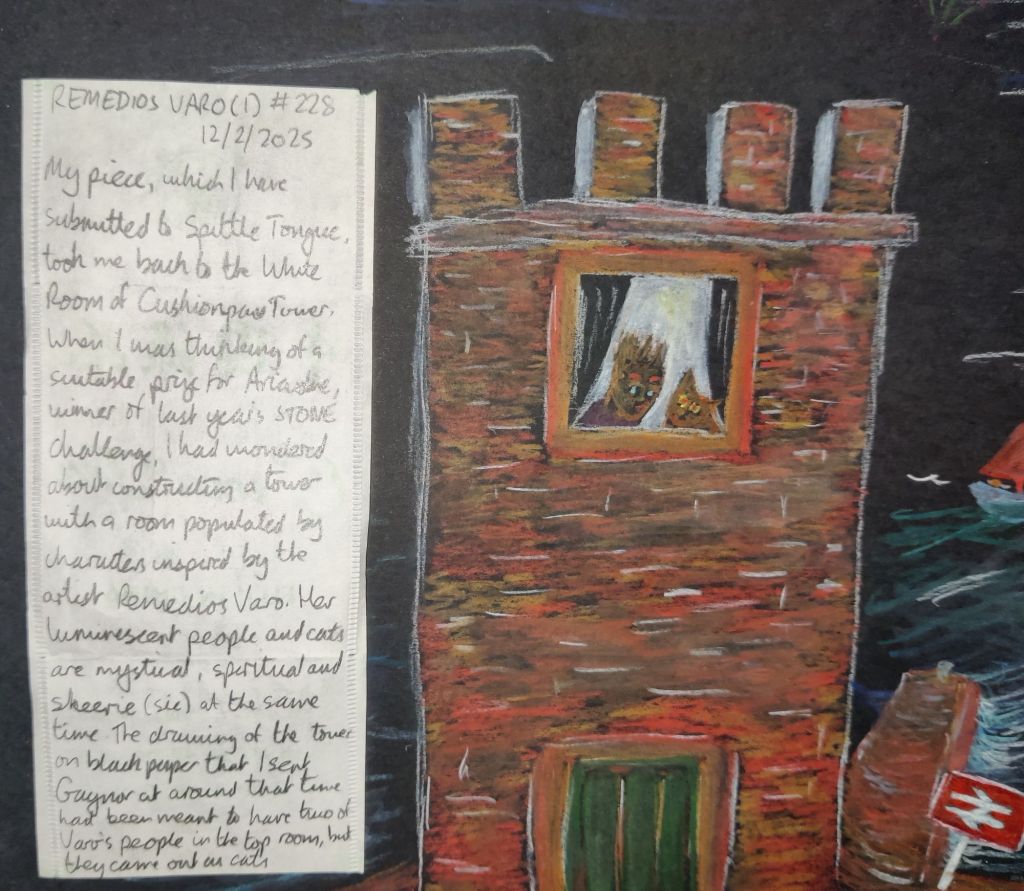 REMEDIOS VARO(1) #228
12/2/2025
My piece, which I have
submitted to Spittle Tongue,
took me back to the White
Room of Cushionpaw Tower.
When I was thinking of a
suitable prize for Ariadne,
winner of last year's STONE
challenge, I had wondered
about constructing a tower
with a room populated by
characters inspired by the
artist Remedios Varo. Her
luminescent people and cats
are mystical, spiritual and
skeerie (sic) at the same
time. The drawing of the tower
on black paper that I sent
Gaynor at around that time
had been meant to have two of
Varo's people in the top room, but
they came out as cats